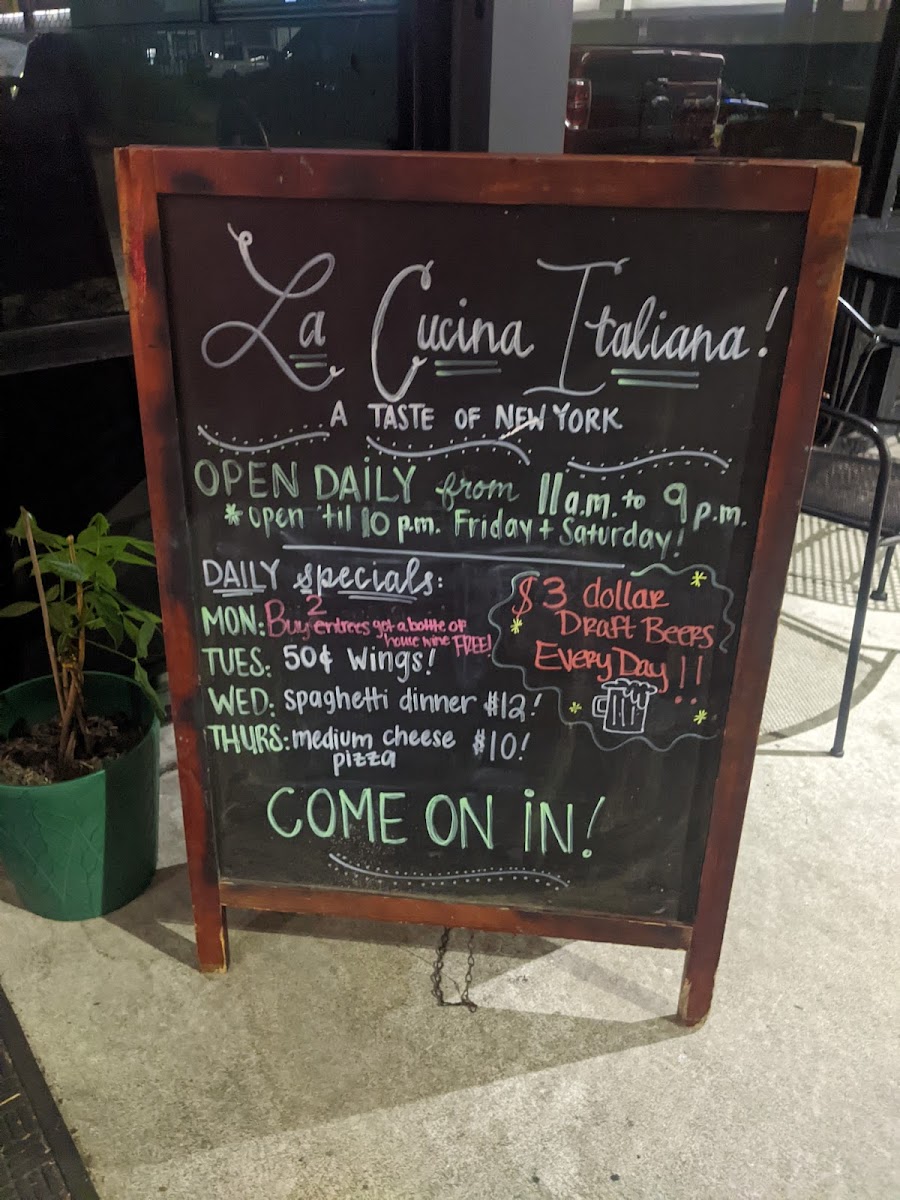 La Cucina Italiana!
A TASTE OF NEW YORK
OPEN DAILY from 11a.m. to 9p.m.
*open 'til 10 p.m. Friday + Saturday!
DAILY specials:
MON: Buy 2 entrees get a bottle of
house wine FREE!
TUES: 50¢ Wings!
WED: spaghetti dinner $12!
THURS: medium cheese $10!
pizza
$3 dollar
Draft Beers
Every Day!!
COME ON IN!